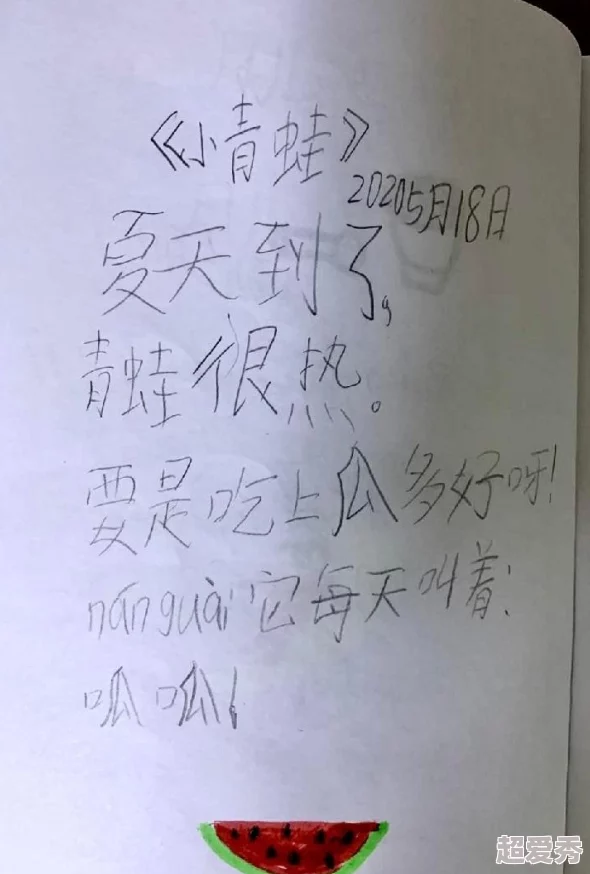 《小青蛙》
20205月18日
夏天到了,
青蛙很热。
要是吃上瓜多好呀!
nánguài它每天叫着:
呱呱!
超爱秀